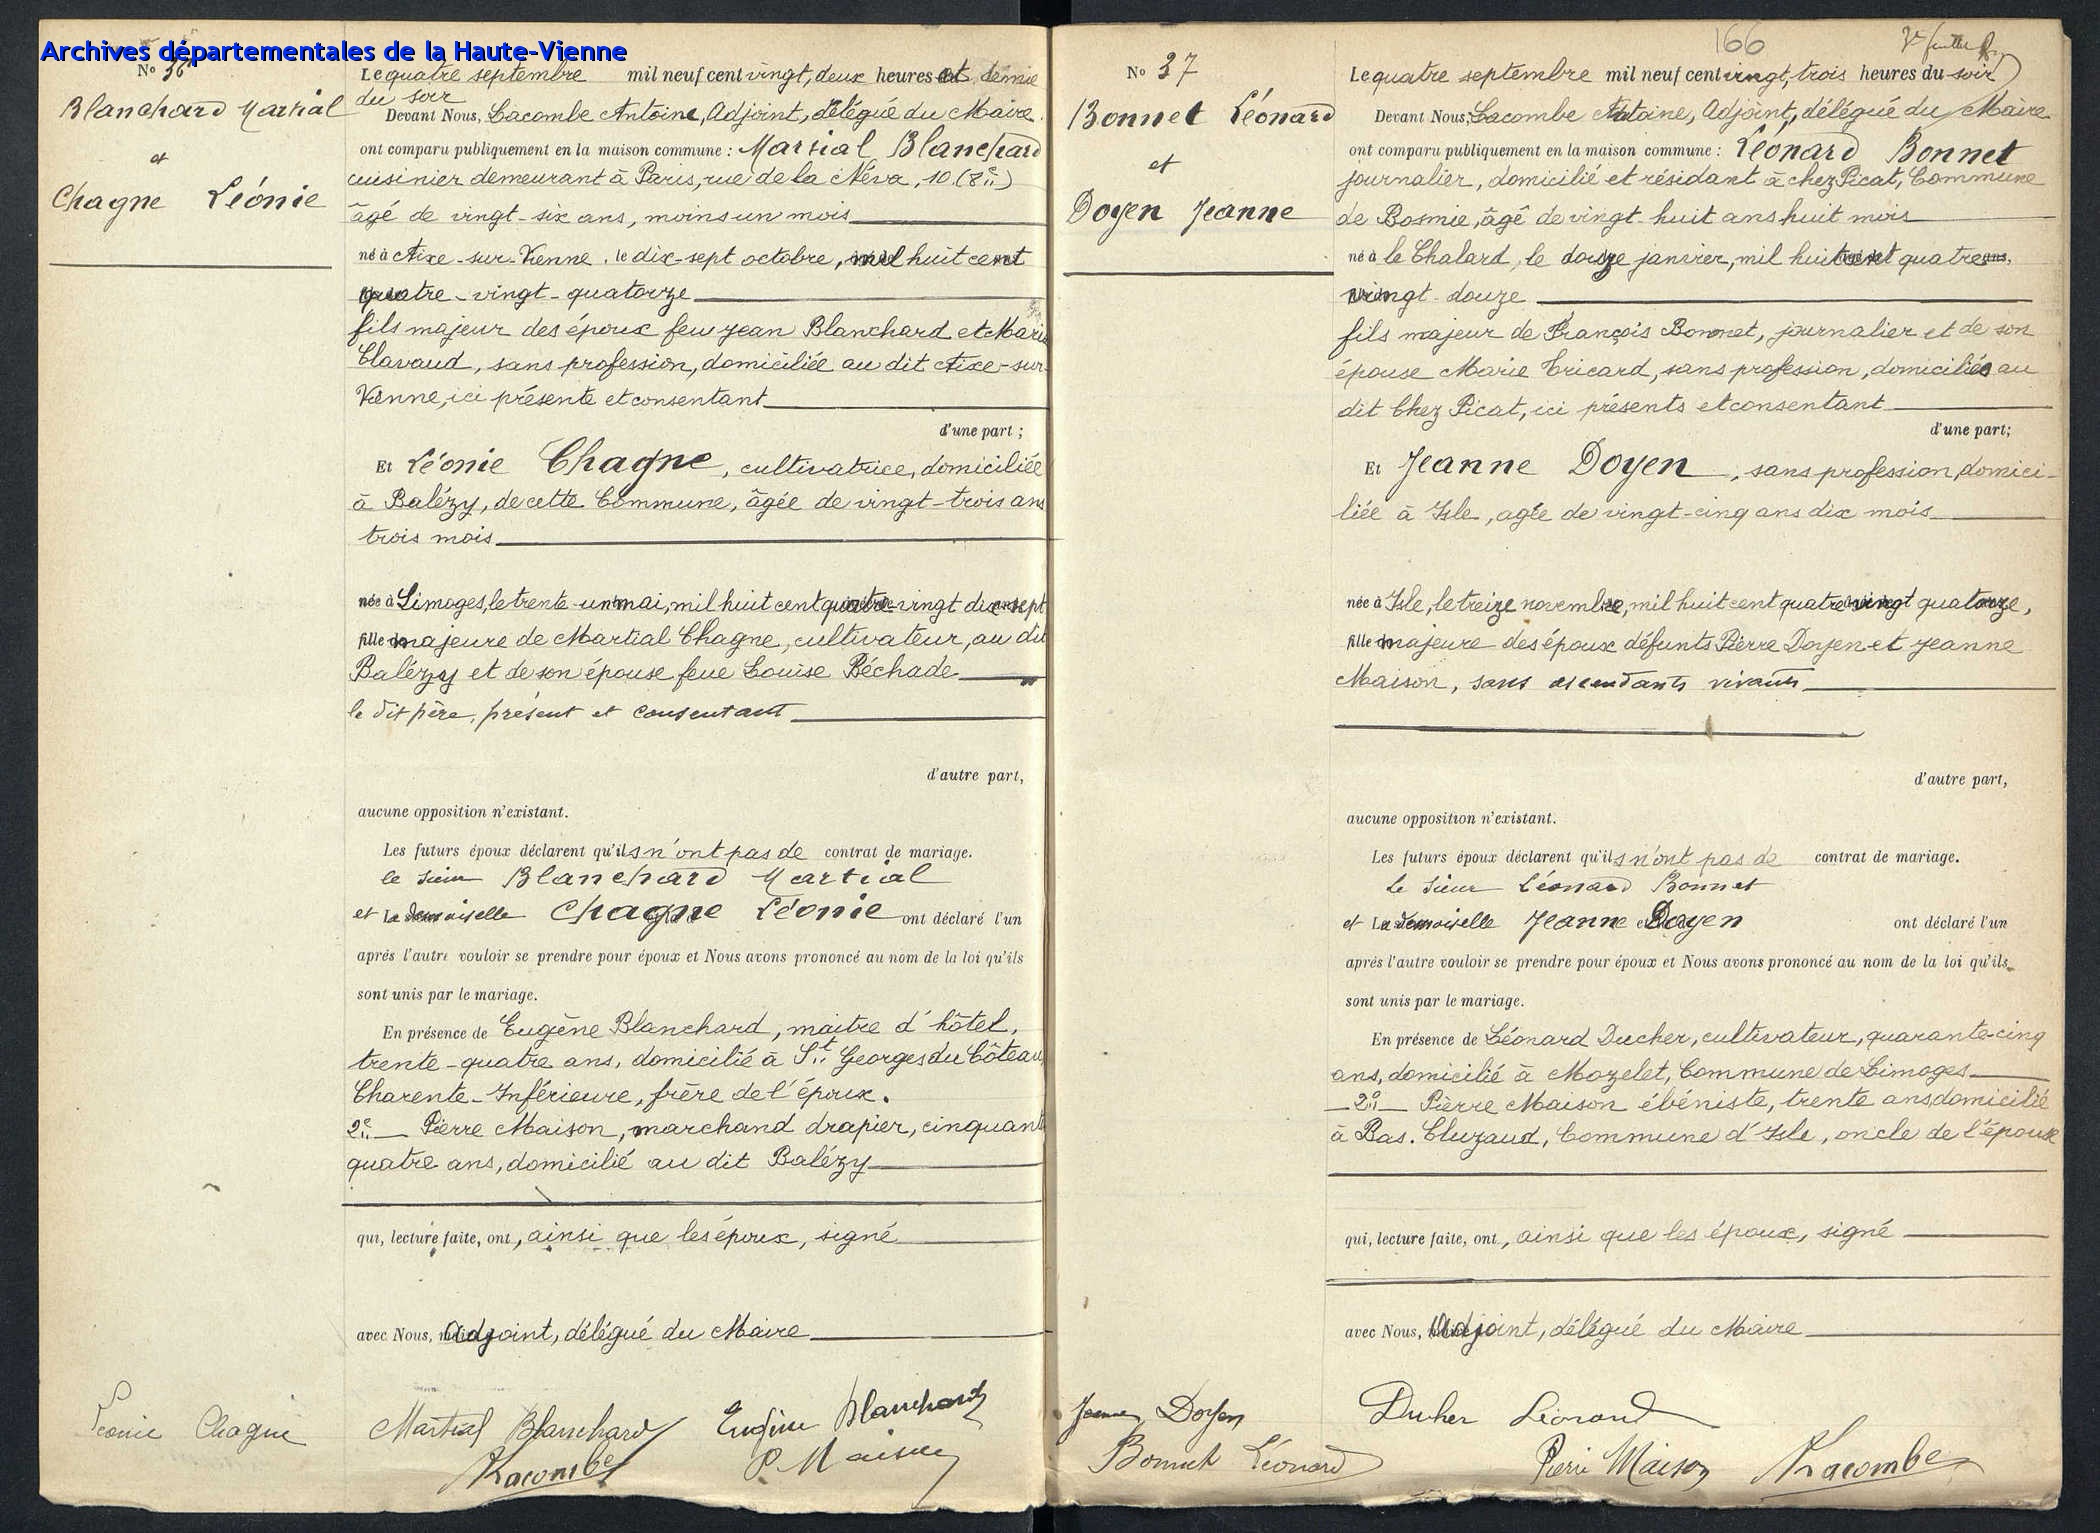 Archives départementales de la Haute-Vienne
No 36
Blanchard Martial
et
Chagne Léonie
Le quatre septembre mil neuf cent vingt, deux heures et demie
du soir
Devant Nous, Lacombe Antoine, Adjoint, délégué du Maire
ont comparu publiquement en la maison commune : Martial Blanchard
cuisinier demeurant à Paris, rue de la Néva, 10 (8e)
âgé de vingt-six ans, moins un mois
né à Aixe-sur-Vienne, le dix-sept octobre, mil huit cent
quatre-vingt-quatorze
fils majeur des époux feu Jean Blanchard et Marie
Clavaud, sans profession, domiciliée au dit Aixe-sur-
Vienne, ici présente et consentant
d'une part ;
Et Léonie Chagne, cultivatrice, domiciliée
à Balézy, de cette Commune, âgée de vingt-trois ans
trois mois
née à Limoges, le trente-un mai, mil huit cent quatre-vingt dix-sept
fille majeure de Martial Chagne, cultivateur, au dit
Balézy et de son épouse feue Louise Péchade
le dit père, présent et consentant
d'autre part,
aucune opposition n'existant.
Les futurs époux déclarent qu'ils n'ont pas de contrat de mariage.
le sieur Blanchard Martial
et La demoiselle Chagne Léonie ont déclaré l'un
après l'autre vouloir se prendre pour époux et Nous avons prononcé au nom de la loi qu'ils
sont unis par le mariage.
En présence de Eugène Blanchard, maitre d'hôtel,
trente-quatre ans, domicilié à St Georges du Côteau,
Charente-Inférieure, frère de l'époux.
2e — Pierre Maison, marchand drapier, cinquante
quatre ans, domicilié au dit Balézy
qui, lecture faite, ont, ainsi que les époux, signé
avec Nous, adjoint, délégué du Maire
Léonie Chagne Martial Blanchard Eugène Blanchard
ALacombe P Maison
166
No 37
Bonnet Léonard
et
Doyen Jeanne
Le quatre septembre mil neuf cent vingt, trois heures du soir
Devant Nous, Lacombe Antoine, Adjoint, délégué du Maire
ont comparu publiquement en la maison commune : Léonard Bonnet
journalier, domicilié et résidant à chez Picat, Commune
de Bosmie, âgé de vingt-huit ans huit mois
né à le Chalard, le douze janvier, mil huit cent quatre
vingt-douze
fils majeur de François Bonnet, journalier et de son
épouse Marie Tricard, sans profession, domiciliés au
dit Chez Picat, ici présents et consentant
d'une part;
Et Jeanne Doyen, sans profession, domici-
liée à Isle, agée de vingt-cinq ans dix mois
née à Isle, le treize novembre, mil huit cent quatre vingt quatorze,
fille majeure des époux défunts Pierre Doyen et Jeanne
Maison, sans ascendants vivants
d'autre part,
aucune opposition n'existant.
Les futurs époux déclarent qu'ils n'ont pas de contrat de mariage.
Le sieur Léonard Bonnet
et La demoiselle Jeanne Doyen ont déclaré l'un
après l'autre vouloir se prendre pour époux et Nous avons prononcé au nom de la loi qu'ils
sont unis par le mariage.
En présence de Léonard Ducher, cultivateur, quarante-cinq
ans, domicilié à Mozelet, Commune de Limoges
— 2e — Pierre Maison ébéniste, trente ans, domicilié
à Bas. Cluzaud, Commune d'Isle, oncle de l'épouse
qui, lecture faite, ont, ainsi que les époux, signé
avec Nous, Adjoint, délégué du Maire
Jeanne Doyen Ducher Léonard
Bonnet Léonard Pierre Maison ALacombe